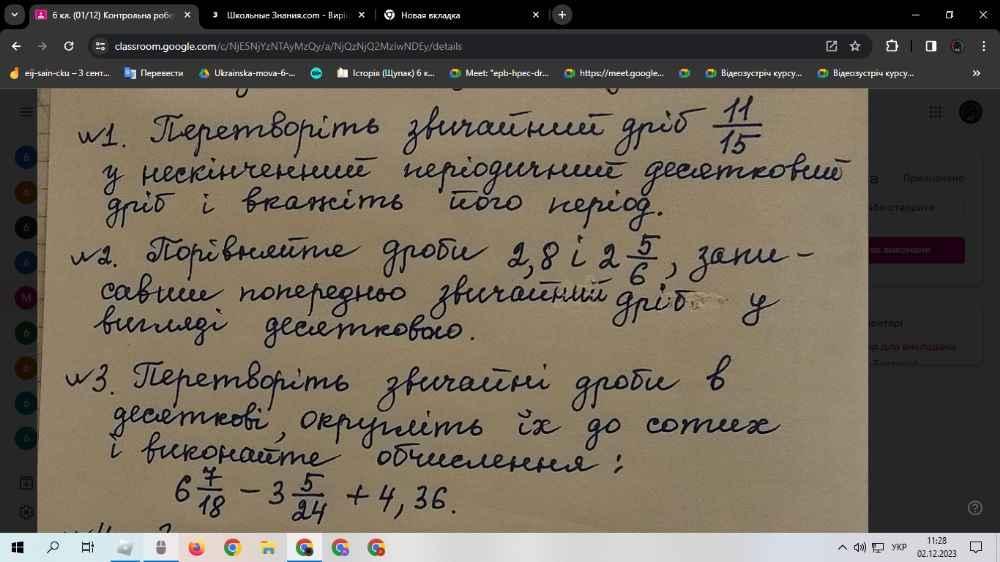 6 кл. (01/12) Контрольна робо
Школьные Знания.com - Вирі
Новая вкладка
classroom.google.com/c/NjE5NjYzNTAyMzQy/a/NjQzNjQ2MziwNDEy/details
eij-sain-cku – 3 сент...
Перевести
Ukrainska-mova-6-...
Історія (Щупак) 6 к...
Meet: "epb-hpec-dr...
https://meet.google...
Відеозустріч курсу...
Відеозустріч курсу...
»
№1. Перетворіть звичайний дріб 11/15
у нескінченний періодичний десятковий
дріб і вкажіть його період.
№2. Порівняйте дроби 2,8 і 2 5/6, запи-
савши попередньо звичайний дріб у
вигляді десяткового.
№3. Перетворіть звичайні дроби в
десяткові, округліть їх до сотих
і виконайте обчислення:
6 7/18 − 3 5/24 + 4,36.
Призначено
УКР
11:28
02.12.2023